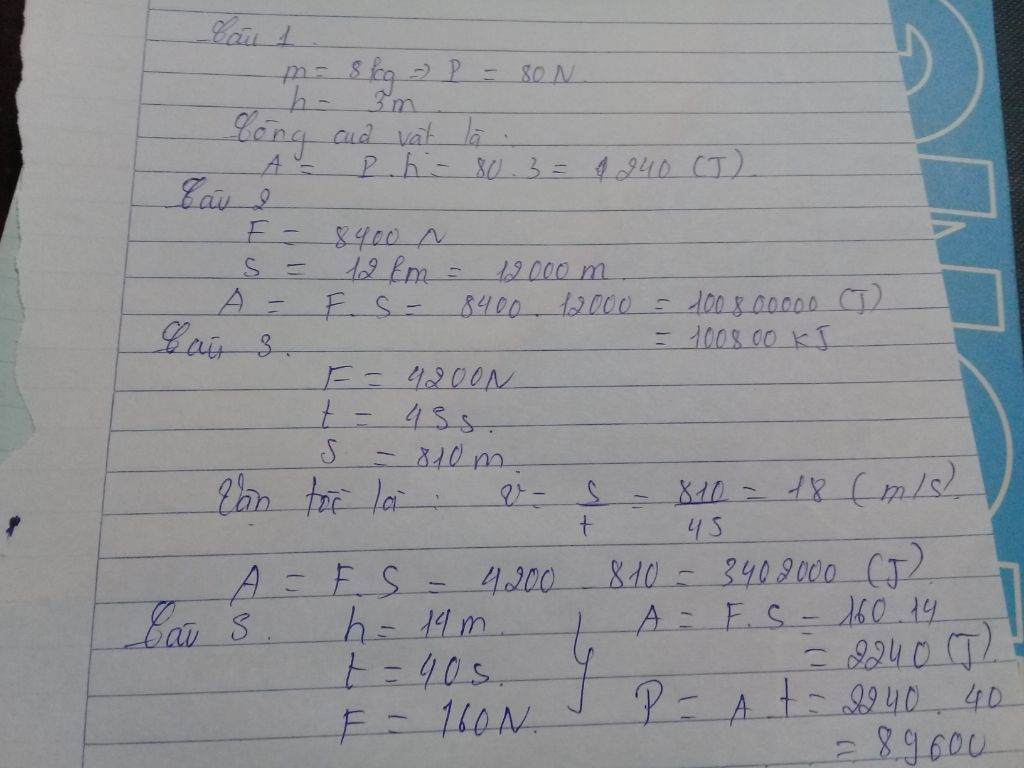 Câu 1.
m = 8kg => P = 80 N.
h = 3m
Công của vật là:
A = P.h = 80.3 = 240 (J).
Câu 2
F = 8400 N
S = 12 km = 12000 m.
A = F.S = 8400.12000 = 100800000 (J)
= 100800 KJ
Câu 3.
F = 4200N
t = 45s.
S = 810m.
Vận tốc là: v = s/t = 810/45 = 18 (m/s).
A = F.S = 4200.810 = 3402000 (J).
Câu 5. h = 14m.
t = 40s.
F = 160N.
A = F.S = 160.14
= 2240 (J).
P = A.t = 2240.40
= 89600